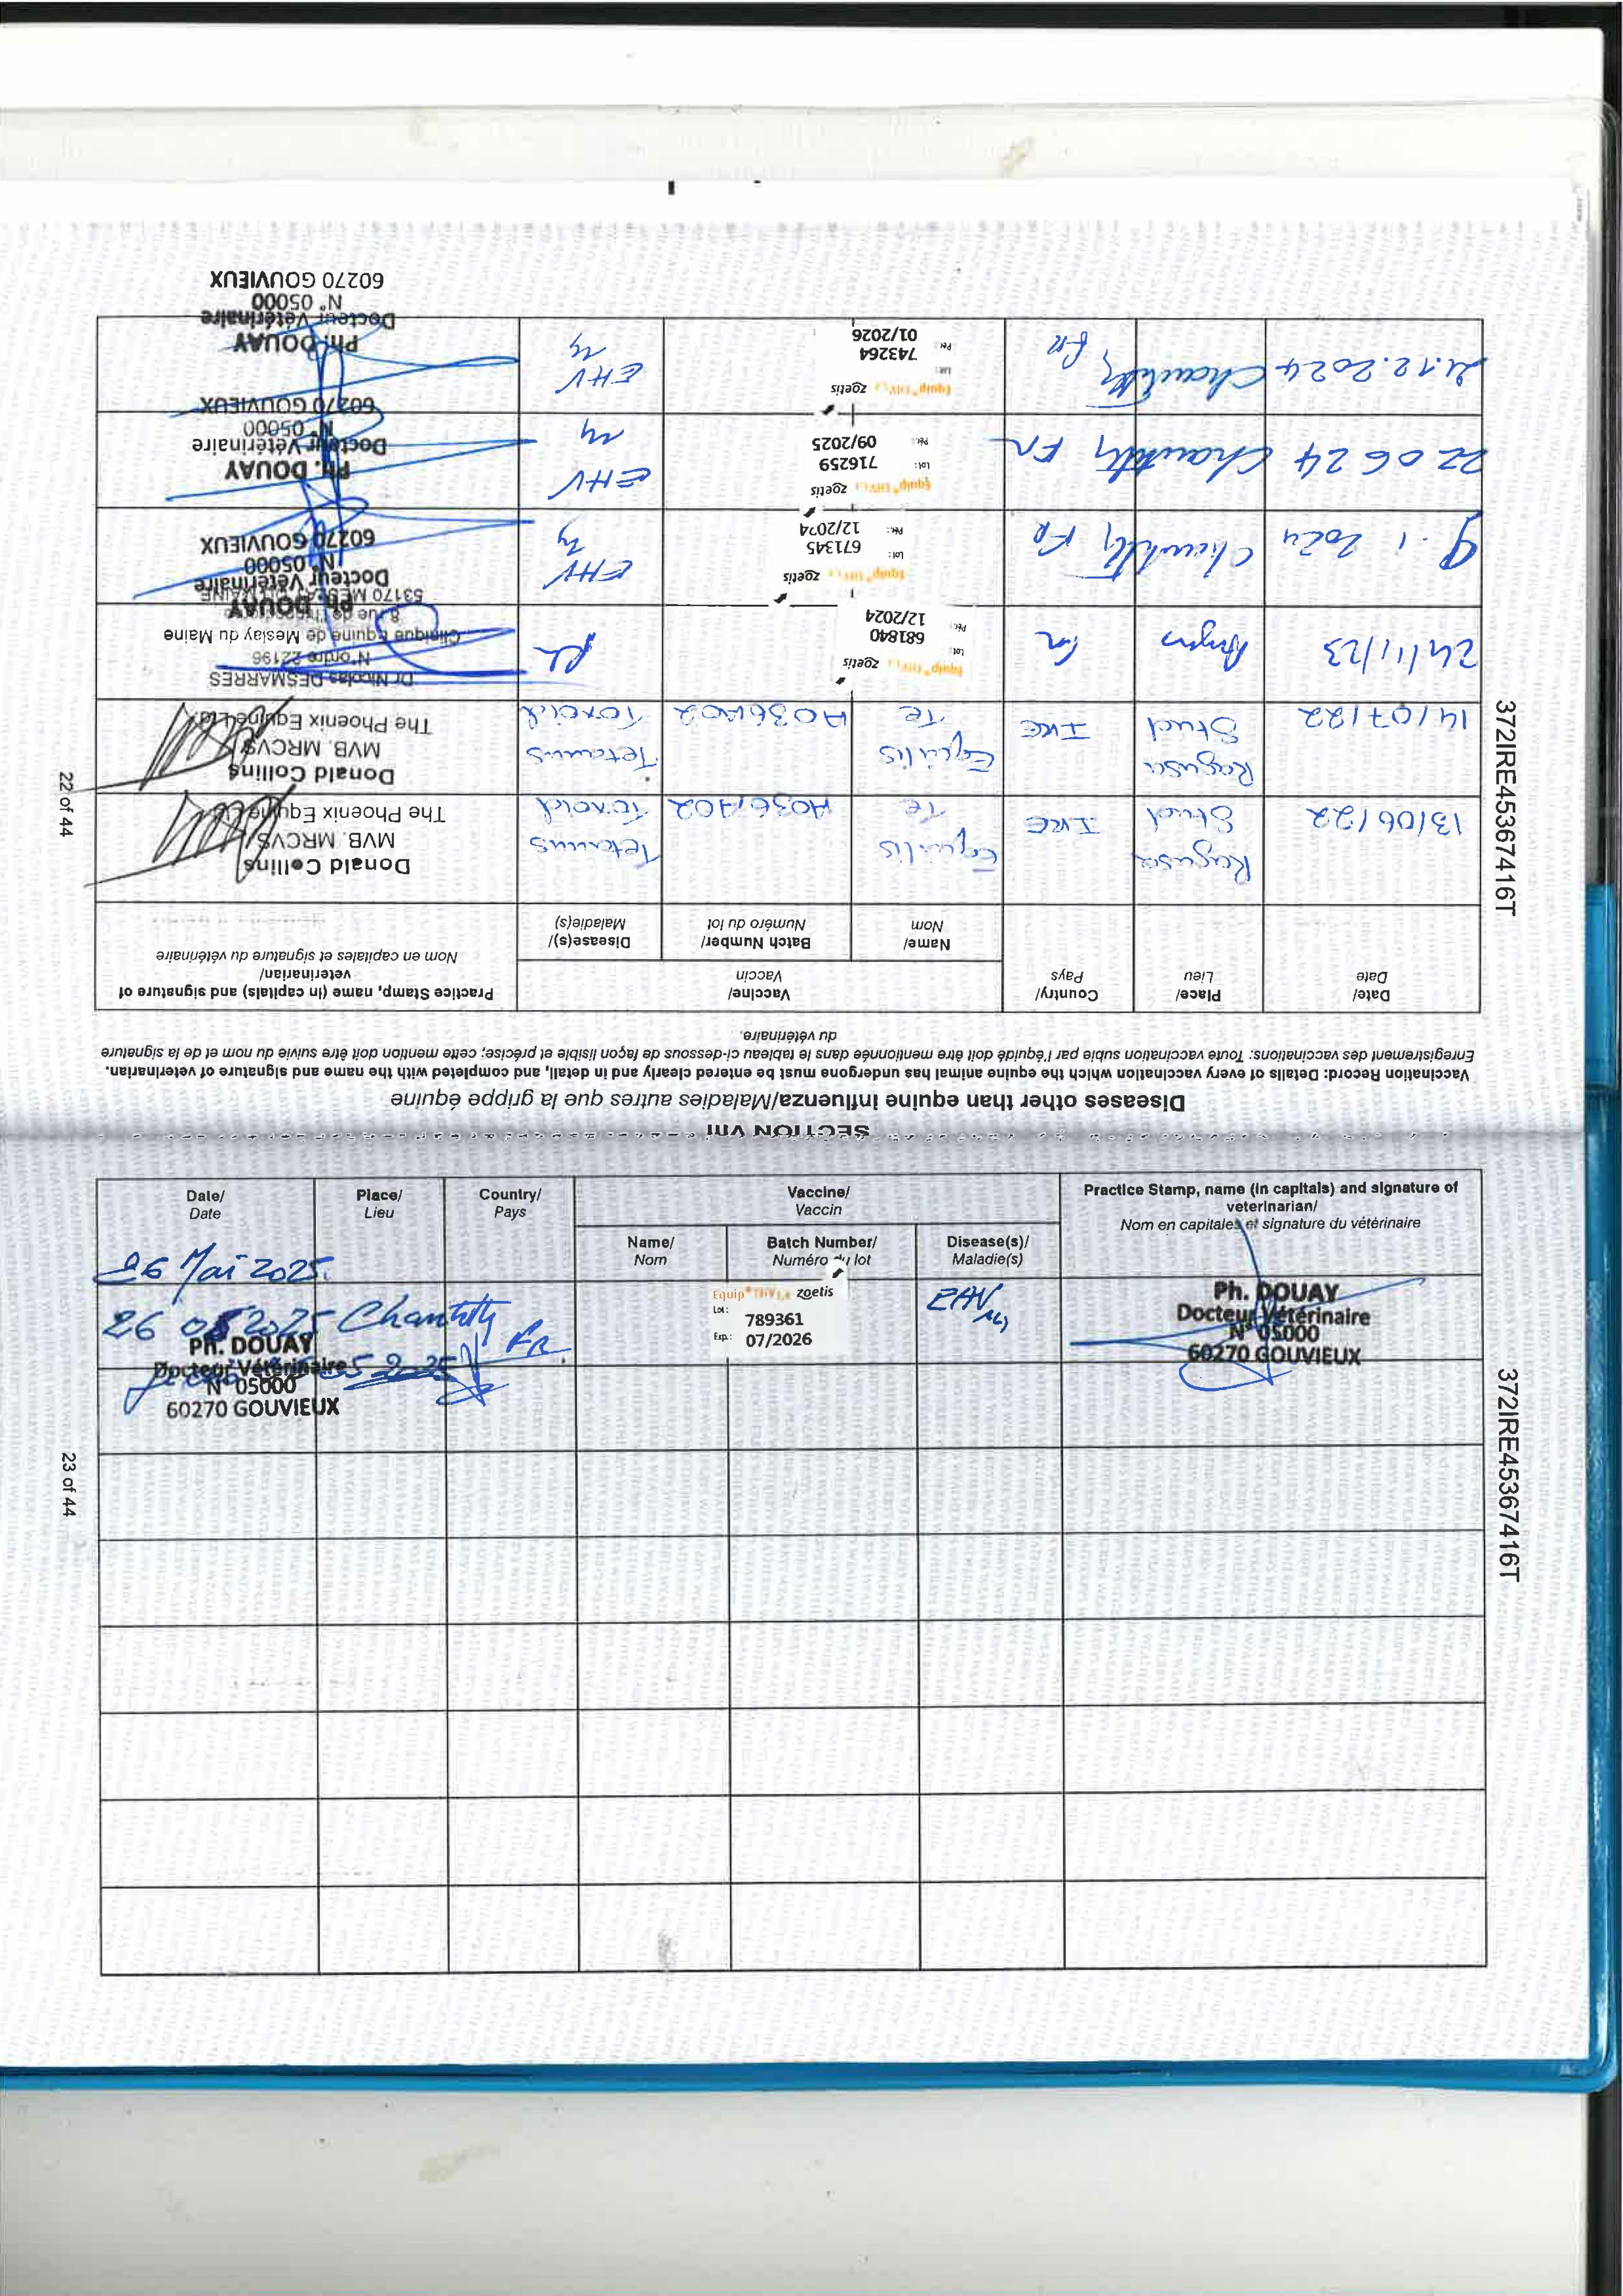 SECTION VIII
Diseases other than equine influenza/Maladies autres que la grippe équine
Vaccination Record: Details of every vaccination which the equine animal has undergone must be entered clearly and in detail, and completed with the name and signature of veterinarian.
Enregistrement des vaccinations: Toute vaccination subie par l'équidé doit être mentionnée dans le tableau ci-dessous de façon lisible et précise; cette mention doit être suivie du nom et de la signature
du vétérinaire.
Date/
Date
Place/
Lieu
Country/
Pays
Vaccine/
Vaccin
Name/
Nom
Batch Number/
Numéro du lot
Disease(s)/
Maladie(s)
Practice Stamp, name (in capitals) and signature of
veterinarian/
Nom en capitales et signature du vétérinaire
13/06/22
Ragusa
Stud
IRE
Equilis
Te
A036A02
Tetanus
Toxoid
Donald Collins
MVB. MRCVS
The Phoenix Equine Ltd
14/07/22
Ragusa
Stud
IRE
Equilis
Te
A036A02
Tetanus
Toxoid
Donald Collins
MVB. MRCVS
The Phoenix Equine Ltd
24/11/23
Equip EHV1,4 zoetis
Lot: 681840
Pér.: 12/2024
Dr Nicolas DESMARRES
N°ordre 22196
Clinique Equine de Meslay du Maine
53170 MESLAY DU MAINE
9.1.2024 Chantilly FR
Equip EHV1,4 zoetis
Lot: 671345
Pér.: 12/2024
EHV
1,4
Ph. DOUAY
Docteur Vétérinaire
N° 05000
60270 GOUVIEUX
22 06 24 Chantilly FR
Equip EHV1,4 zoetis
Lot: 716259
Pér.: 09/2025
EHV
1,4
Ph. DOUAY
Docteur Vétérinaire
N° 05000
60270 GOUVIEUX
21.12.2024 Chantilly FR
Equip EHV1,4 zoetis
Lot: 743264
Pér.: 01/2026
EHV
1,4
Ph. DOUAY
Docteur Vétérinaire
N° 05000
60270 GOUVIEUX
22 of 44
372IRE45367416T
Date/
Date
Place/
Lieu
Country/
Pays
Vaccine/
Vaccin
Name/
Nom
Batch Number/
Numéro du lot
Disease(s)/
Maladie(s)
Practice Stamp, name (in capitals) and signature of
veterinarian/
Nom en capitales et signature du vétérinaire
26 Mai 2025
26 05 2025 Chantilly FR
Equip EHV1,4 zoetis
Lot: 789361
Exp.: 07/2026
EHV
1,4
Ph. DOUAY
Docteur Vétérinaire
N° 05000
60270 GOUVIEUX
Ph. DOUAY
Docteur Vétérinaire
N° 05000
60270 GOUVIEUX
5 2025
23 of 44
372IRE45367416T